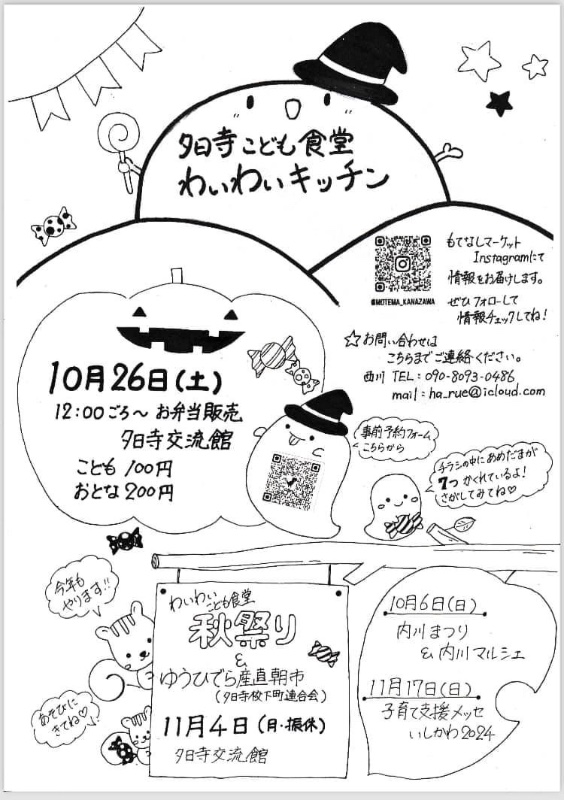 夕日寺こども食堂
わいわいキッチン
もてなしマーケット
Instagramにて
情報をお届けします。
ぜひフォローして
情報チェックしてね!
@MOTEMA_KANAZAWA
☆お問い合わせは
こちらまでご連絡ください。
西川 TEL:090-8093-0486
mail:ha_rue@icloud.com
10月26日(土)
12:00ごろ〜お弁当販売
夕日寺交流館
こども100円
おとな200円
事前予約フォーム
こちらから
チラシの中にあめだまが
7つかくれているよ!
さがしてみてね♡
今年も
やります!!
あそびに
きてね♡
わいわい
こども食堂
秋祭り
&
ゆうひでら産直朝市
(夕日寺校下町連合会)
11月4日(月・振休)
夕日寺交流館
10月6日(日)
内川まつり
&内川マルシェ
11月17日(日)
子育て支援メッセ
いしかわ2024